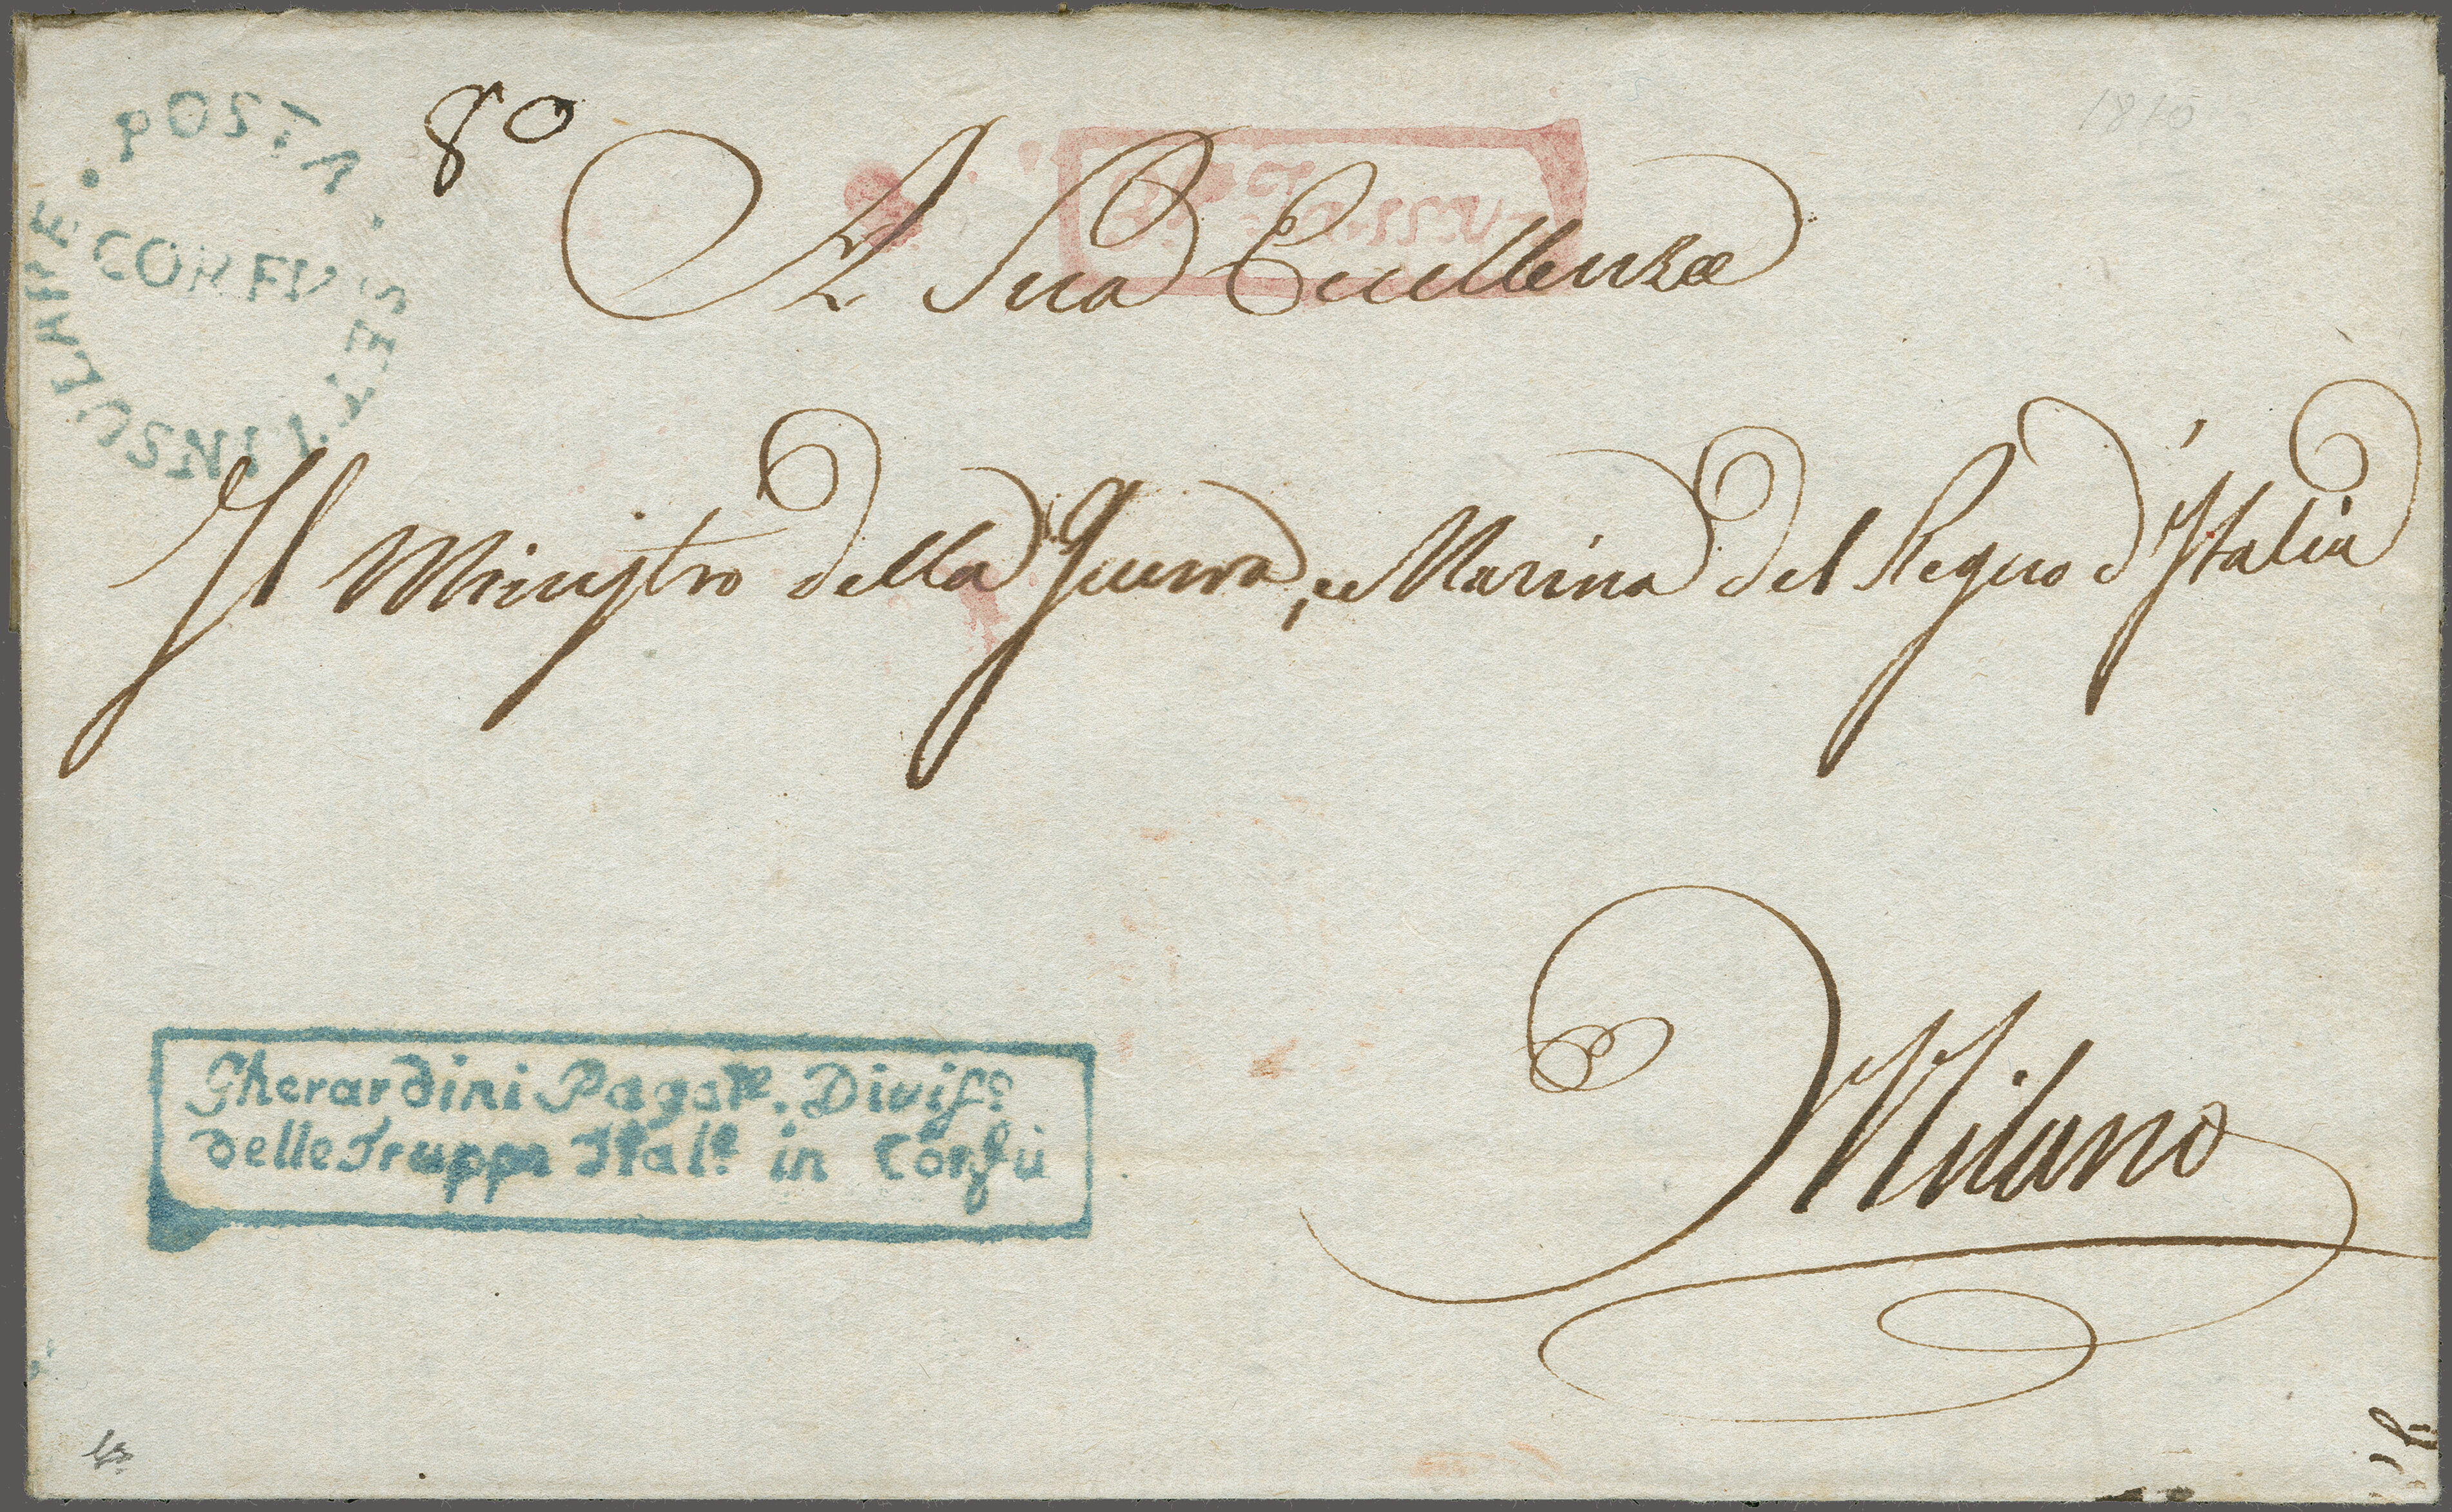 POSTA SETTINSULARE
CORFU
80
1810
A Sua Eccellenza
Il Ministro della Guerra, e Marina del Regno d'Italia
Milano
Gherardini Pagate. Divise
delle Truppe Itale in Corfù